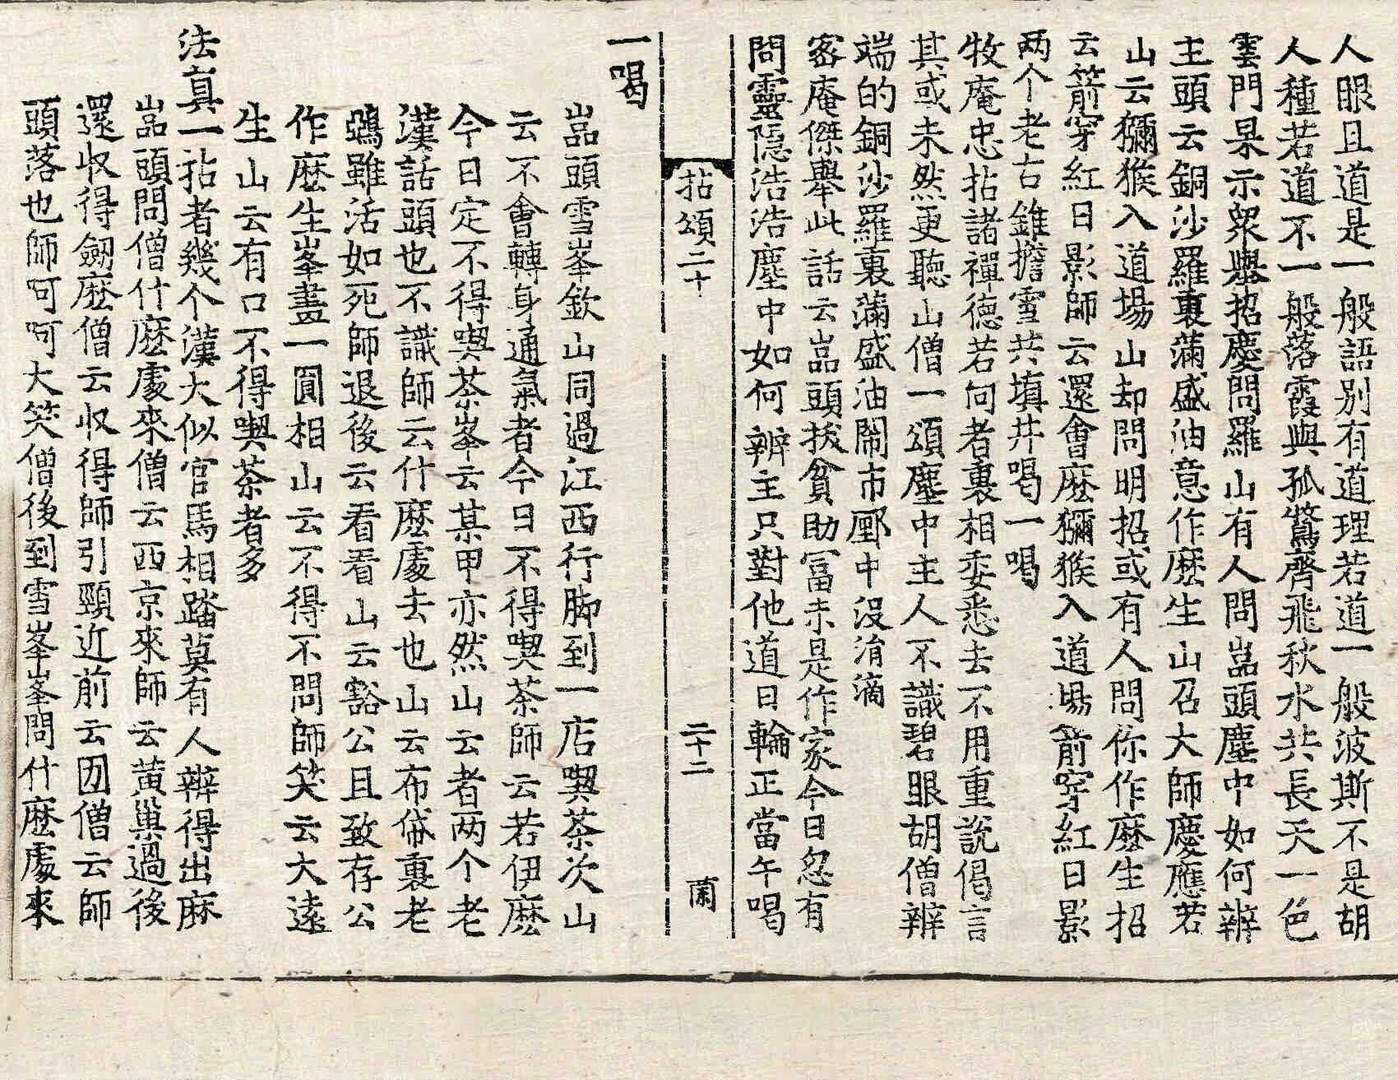 人眼且道是一般語別有道理若道一般波斯不是胡
人種若道不一般落霞與孤鶩齊飛秋水共長天一色
雲門杲示衆舉招慶問羅山有人問嵓頭塵中如何辨
主頭云銅沙羅裏滿盛油意作麽生山召大師慶應若
山云獼猴入道場山却問明招或有人問你作麽生招
云箭穿紅日影師云還會麽獼猴入道場箭穿紅日影
两个老古錐擔雪共填井喝一喝
牧庵忠拈諸禪德若向者裏相委悉去不用重說偈言
其或未然更聽山僧一頌塵中主人不識碧眼胡僧辨
端的銅沙羅裏滿盛油鬧市𨞬中没涓滴
密庵傑舉此話云嵓頭拔貧助冨未是作家今日忽有
問靈隠浩浩塵中如何辨主只對他道日輪正當午喝
拈頌二十 二十二 蘭
一喝
嵓頭雪峯欽山同過江西行脚到一店喫茶次山
云不會轉身通氣者今日不得喫茶師云若伊麽
今日定不得喫茶峯云某甲亦然山云者两个老
漢話頭也不識師云什麽處去也山云布帒裏老
鵶雖活如死師退後云看看山云豁公且致存公
作麽生峯畫一圓相山云不得不問師笑云大遠
生山云有口不得喫茶者多
法真一拈者幾个漢大似官馬相踏莫有人辨得出麽
嵓頭問僧什麽處來僧云西京來師云黄巢過後
還収得劔麽僧云収得師引頸近前云㘞僧云師
頭落也師呵呵大笑僧後到雪峯峯問什麽處來